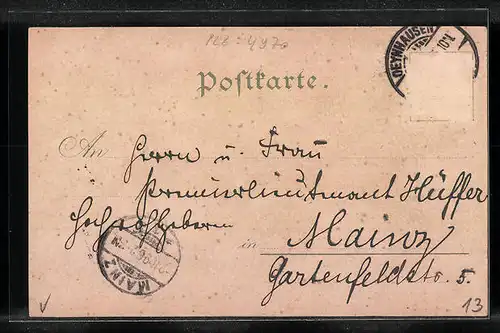 PLZ: 4970
OEYNHAUSEN
Postkarte.
An Herrn u. Frau
Premierlieutnant Hüffer
Hochwohlgeboren
in Mainz
Gartenfeldstr. 5.
MAINZ
13